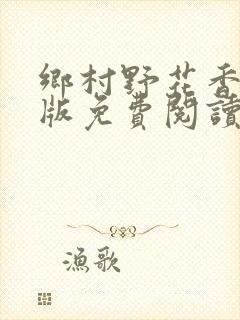 鄉村野花香
版免費閱讀
漁歌